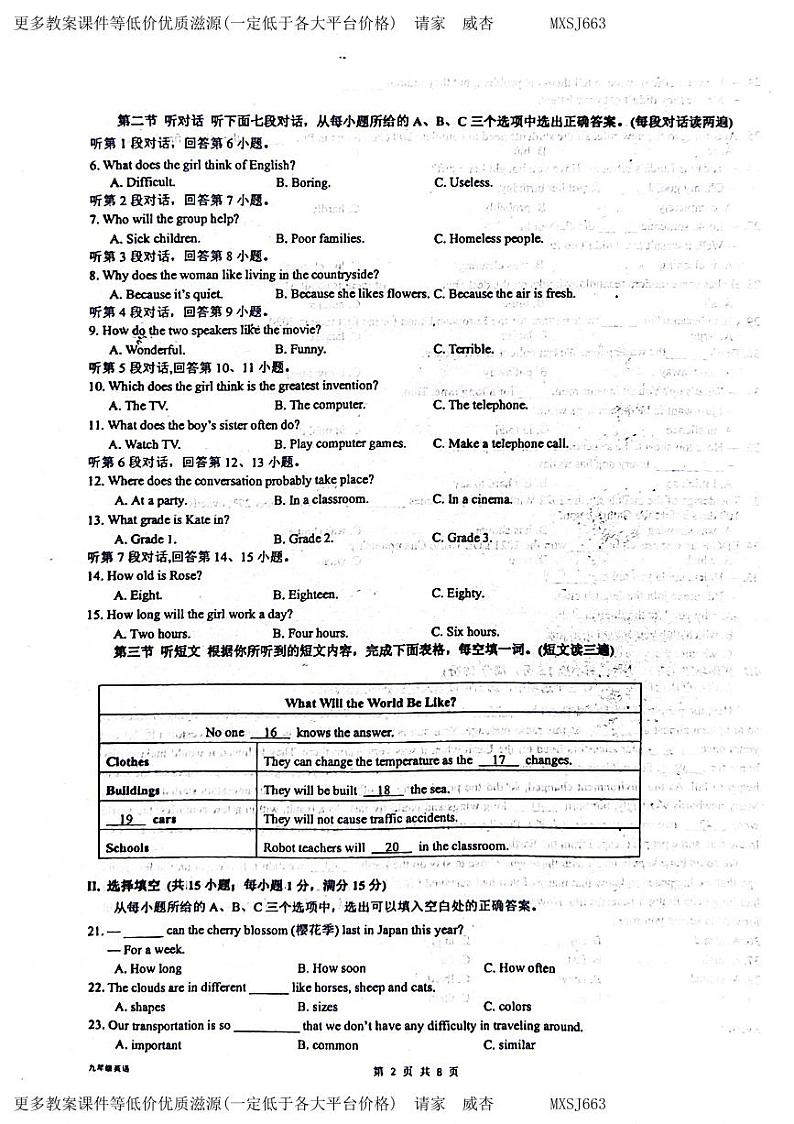 更多教案课件等低价优质滋源(一定低于各大平台价格) 请家 威杏 MXSJ663
第二节 听对话 听下面七段对话，从每小题所给的 A、B、C 三个选项中选出正确答案。(每段对话读两遍)
听第 1 段对话，回答第 6 小题。
6. What does the girl think of English?
A. Difficult. B. Boring. C. Useless.
听第 2 段对话，回答第 7 小题。
7. Who will the group help?
A. Sick children. B. Poor families. C. Homeless people.
听第 3 段对话，回答第 8 小题。
8. Why does the woman like living in the countryside?
A. Because it's quiet. B. Because she likes flowers. C. Because the air is fresh.
听第 4 段对话，回答第 9 小题。
9. How do the two speakers like the movie?
A. Wonderful. B. Funny. C. Terrible.
听第 5 段对话,回答第 10、11 小题。
10. Which does the girl think is the greatest invention?
A. The TV. B. The computer. C. The telephone.
11. What does the boy's sister often do?
A. Watch TV. B. Play computer games. C. Make a telephone call.
听第 6 段对话，回答第 12、13 小题。
12. Where does the conversation probably take place?
A. At a party. B. In a classroom. C. In a cinema.
13. What grade is Kate in?
A. Grade 1. B. Grade 2. C. Grade 3.
听第 7 段对话,回答第 14、15 小题。
14. How old is Rose?
A. Eight. B. Eighteen. C. Eighty.
15. How long will the girl work a day?
A. Two hours. B. Four hours. C. Six hours.
第三节 听短文 根据你所听到的短文内容，完成下面表格，每空填一词。(短文读三遍)
What Will the World Be Like?
No one __16__ knows the answer.
Clothes They can change the temperature as the __17__ changes.
Buildings They will be built __18__ the sea.
__19__ cars They will not cause traffic accidents.
Schools Robot teachers will __20__ in the classroom.
II. 选择填空 (共 15 小题；每小题 1 分，满分 15 分)
从每小题所给的 A、B、C 三个选项中，选出可以填入空白处的正确答案。
21. — ______ can the cherry blossom (樱花季) last in Japan this year?
— For a week.
A. How long B. How soon C. How often
22. The clouds are in different ______ like horses, sheep and cats.
A. shapes B. sizes C. colors
23. Our transportation is so __________ that we don't have any difficulty in traveling around.
A. important B. common C. similar
九年级英语 第 2 页 共 8 页
更多教案课件等低价优质滋源(一定低于各大平台价格) 请家 威杏 MXSJ663